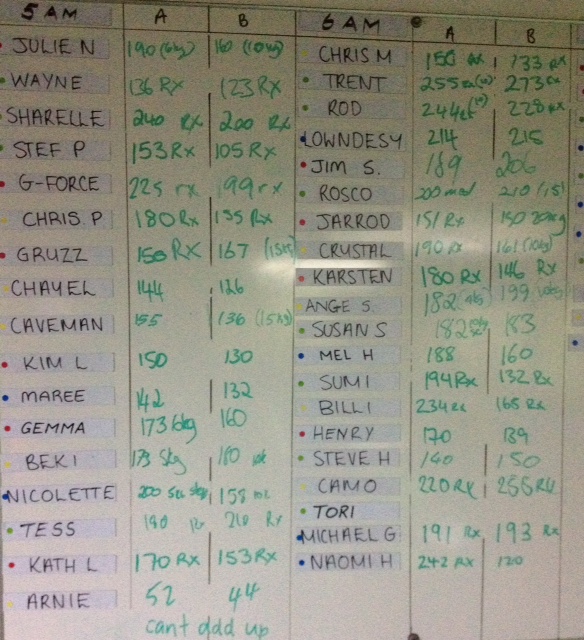 5 AM A B
JULIE N 190 (6kg) 160 (10kg)
WAYNE 136 Rx 123 Rx
SHARELLE 240 Rx 200 Rx
STEF P 153 Rx 105 Rx
G-FORCE 225 rx 199 rx
CHRIS P 180 Rx 135 Rx
GRUZZ 150 RX 167
CHAYEL 144 126
CAVEMAN 155 136 (15kg)
KIM L 150 130
MAREE 142 132
GEMMA 173 160
BEKI 173 5kg
NICOLETTE 200 158
TESS 190 Rx 210 Rx
KATH L 170 RX 153 RX
ARNIE 52 44
cant add up
6 AM A B
CHRIS M 150 Rx 133 Rx
TRENT 255 273 Rx
ROD 228 Rx
LOWNDESY 214 215
JIM S. 189 206
ROSCO 200 mod 210 (15)
JARROD 151 Rx 150 20kg
CRUSTAL 190 Rx 161 (10kg)
KARSTEN 180 RX 146 Rx
ANGE S 182 199
SUSAN S 182 183
MEL H 188 160
SUMI 194 Rx 132 Rx
BILLI 234 Rx 165 Rx
HENRY 170 139
STEVE H 140 150
CAMO 220 RX 256 RX
TORI
MICHAEL G 191 RX 193 RX
NAOMI H 242 RX 120